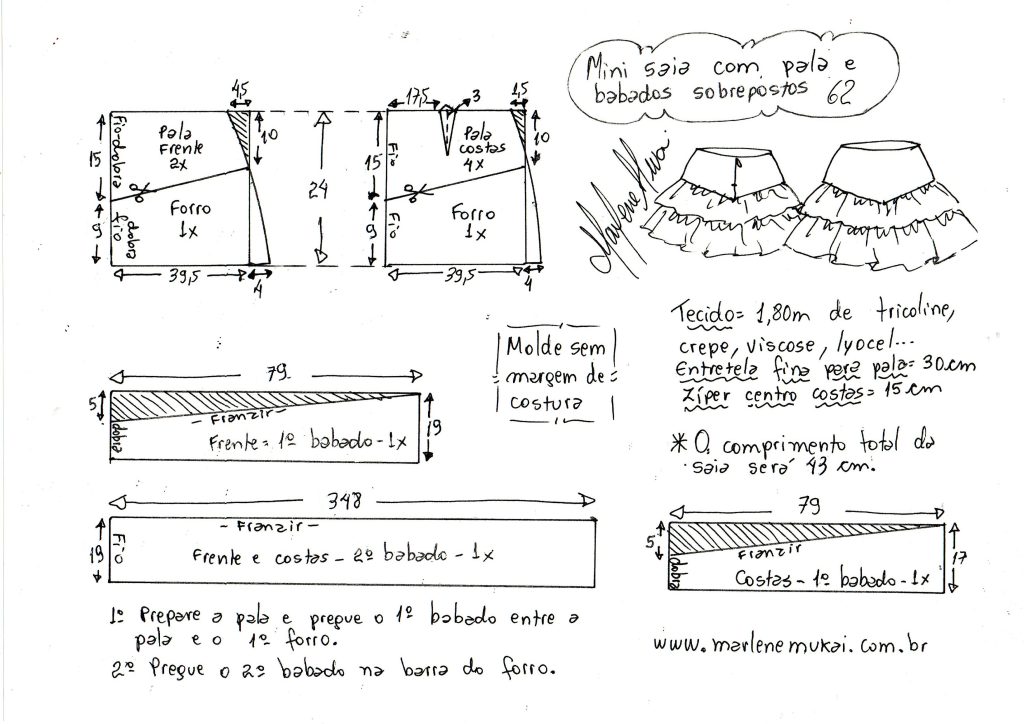 Mini saia com pala e
babados sobrepostos 62
Marlene Mukai
4,5
10
15
9
Fio-dobra
Pala
Frente
2x
Forro
1x
dobra
fio
39,5
4
24
17,5
3
1,5
10
15
9
Fio
Pala
costas
4x
Forro
1x
Fio
39,5
4
Tecido= 1,80m de tricoline,
crepe, viscose, lyocel...
Entretela fina para pala= 30cm
Zíper centro costas= 15cm
* O comprimento total da
saia será 43 cm.
Molde sem
margem de
costura
79
5
19
dobra
- Franzir -
Frente= 1º babado-1x
348
19
Fio
- Franzir -
Frente e costas - 2º babado - 1x
79
5
17
dobra
Franzir
Costas- 1º babado-1x
1º Prepare a pala e pregue o 1º babado entre a
pala e o 1º forro.
2º Pregue o 2º babado na barra do forro.
www.marlenemukai.com.br